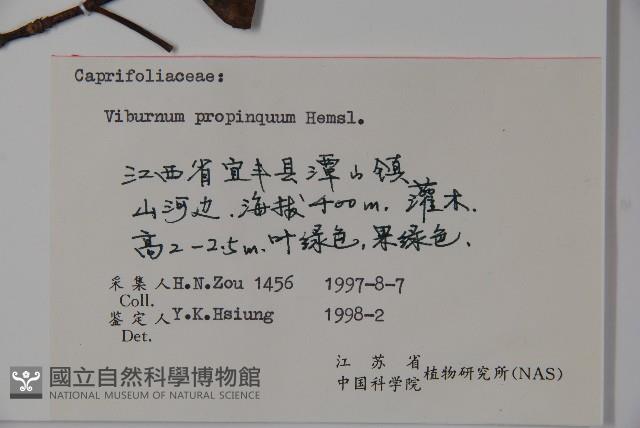 Caprifoliaceae:
Viburnum propinquum Hemsl.
江西省宜丰县潭山镇
山河边.海拔400m.灌木.
高2-2.5m.叶绿色,果绿色.
采集人H.N.Zou 1456 1997-8-7
Coll.
鉴定人Y.K.Hsiung 1998-2
Det.
江苏省
中国科学院植物研究所(NAS)
國立自然科學博物館
NATIONAL MUSEUM OF NATURAL SCIENCE